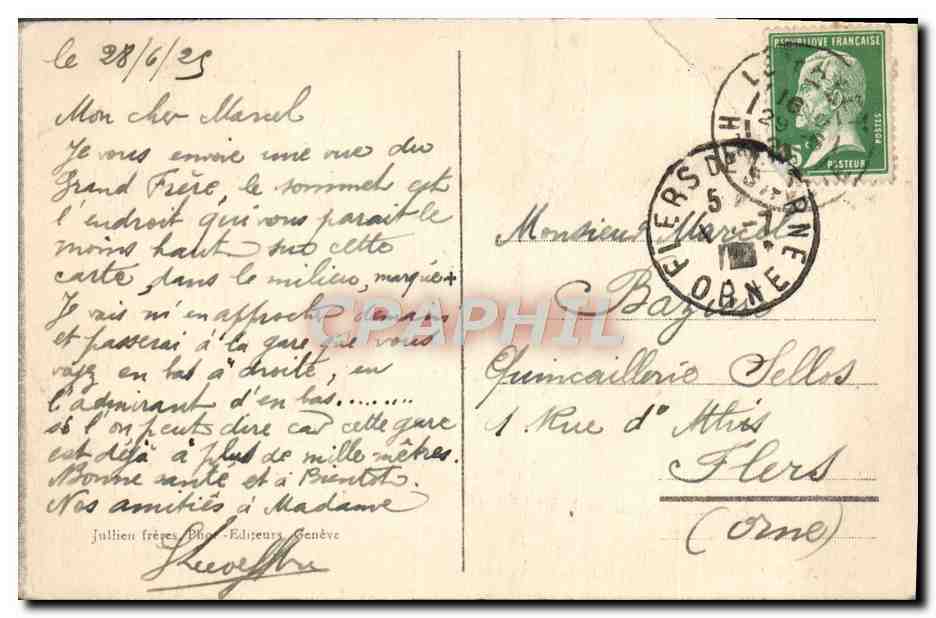 le 28/6/25
Mon cher Marcel
Je vous envoie une vue du
Grand Frère, le sommet est
l'endroit qui vous parait le
moins haut sur cette
carte, dans le milieu, marqué +
Je vais m'en approcher demain
et passerai à la gare que vous
voyez en bas à droite, en
l'admirant d'en bas........
si l'on peut dire car cette gare
est déjà à plus de mille mètres.
Bonne santé et à Bientôt.
Nos amitiés à Madame
Jullien frères, Phot.-Editeurs, Genève
REPUBLIQUE FRANÇAISE
POSTES
PASTEUR
FLERS DE L'ORNE
5
ORNE
Monsieur Marcel
Quincaillerie Sellos
1 Rue d'Athis
Flers
(Orne)
CPAPHIL